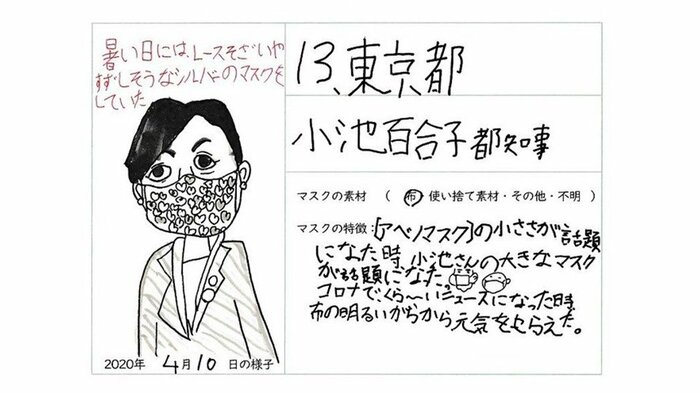 暑い日には、レースそざいや
すずしそうなシルバーのマスクを
していた
2020年 4月10日の様子
13、東京都
小池百合子都知事
マスクの素材 （ 布・使い捨て素材・その他・不明 ）
マスクの特徴：[アベノマスク]の小ささが話題
になった時、小池さんの大きなマスク
が話題になった。
コロナでくら〜いニュースになった時、
布の明るいがらから元気をもらえた。